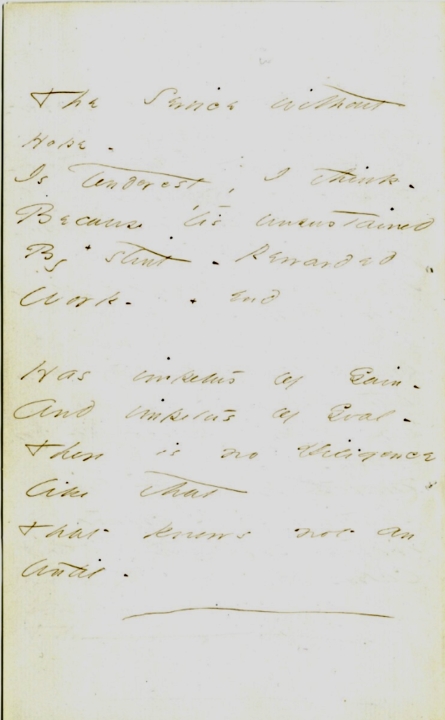 The Service without
Hope -
Is tenderest, I think -
Because 'tis unsustained
By + stint - Rewarded
Work - + end

Has impetus of Gain -
And impetus of Goal -
There is no Diligence
like that
That knows not an
Until -